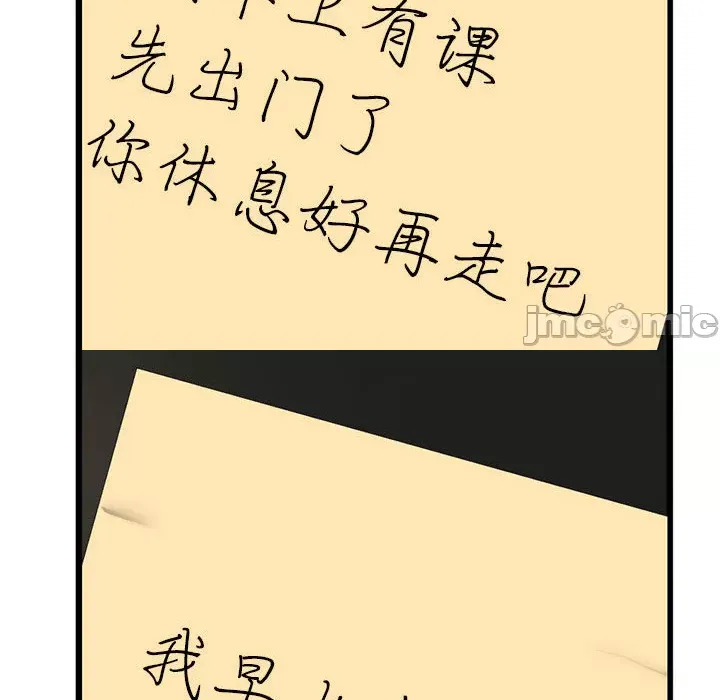 上有课
先出门了
你休息好再走吧
jmcomic
我早